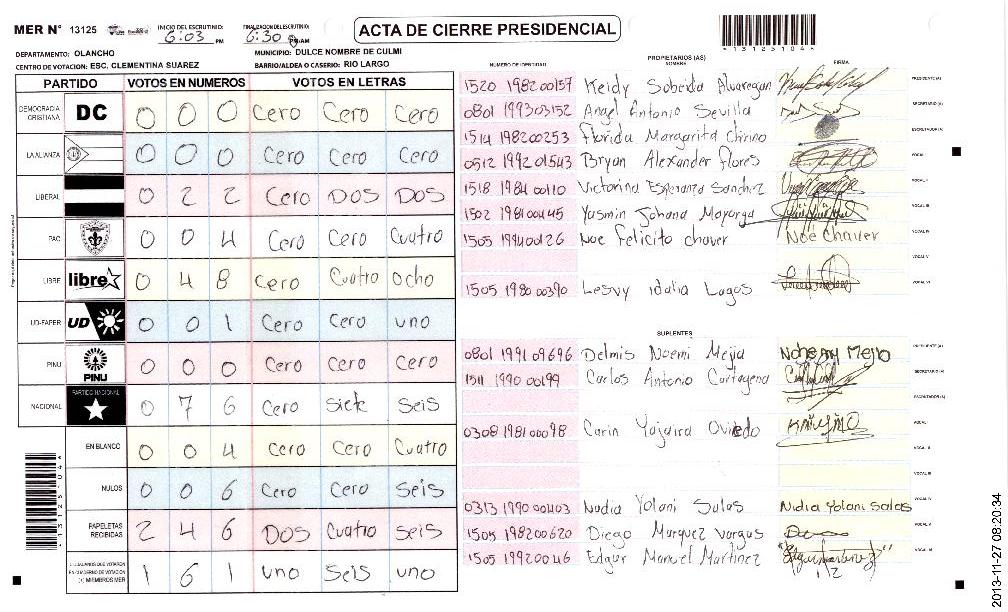 MER N° 13125 INICIO DEL ESCRUTINIO: 6:03 PM FINALIZACION DEL ESCRUTINIO: 6:30 PM/AM
ACTA DE CIERRE PRESIDENCIAL
DEPARTAMENTO: OLANCHO MUNICIPIO: DULCE NOMBRE DE CULMI
CENTRO DE VOTACION: ESC. CLEMENTINA SUAREZ BARRIO/ALDEA O CASERIO: RIO LARGO
PARTIDO VOTOS EN NUMEROS VOTOS EN LETRAS
DEMOCRACIA CRISTIANA DC 0 0 0 Cero Cero Cero
LA ALIANZA 0 0 0 Cero Cero Cero
LIBERAL 0 2 2 Cero DOS DOS
PAC 0 0 4 Cero Cero Cuatro
LIBRE libre 0 4 8 Cero Cuatro Ocho
UD-FAPER UD 0 0 1 Cero Cero uno
PINU PINU 0 0 0 Cero Cero Cero
NACIONAL PARTIDO NACIONAL 0 7 6 Cero siete seis
EN BLANCO 0 0 4 Cero Cero Cuatro
NULOS 0 0 6 Cero Cero Seis
PAPELETAS RECIBIDAS 2 4 6 DOS Cuatro seis
CIUDADANOS QUE VOTARON EN CUADERNO DE VOTACION (+) MIEMBROS MER 1 6 1 uno Seis uno
PROPIETARIOS (AS)
NUMERO DE IDENTIDAD NOMBRE FIRMA
1520 198200157 Keidy Sobeida Alvaregan PRESIDENTE (A)
0801 199303152 Angel Antonio Sevilla SECRETARIO (A)
1514 198200253 Florida Margarita Chirino ESCRUTADOR (A)
0512 199201543 Bryan Alexander flores VOCAL I
1518 1984 00110 Victorina Esperanza Sanchez VOCAL II
1502 1981 00445 Yasmin Johana Mayorga VOCAL III
1505 199400126 Noe felicito chaver Noe Chaver VOCAL IV
VOCAL V
1505 1980 00390 Lesvy idalia Lagos VOCAL VI
SUPLENTES
0801 1991 09696 Delmis Noemi Mejia Nohemy Mejio PRESIDENTE (A)
1511 1990 00199 Carlos Antonio Cartagena SECRETARIO (A)
ESCRUTADOR (A)
0308 1981 00098 Carin Yajaira Oviedo VOCAL I
VOCAL II
VOCAL III
0313 1990 00403 Nadia Yolani Salas Nidia Yolani Salas VOCAL IV
1505 198200620 Diego Marquez vargas VOCAL V
1505 19920046 Edgar Manuel Martinez VOCAL VI
13125104
2013-11-27 08:20:34